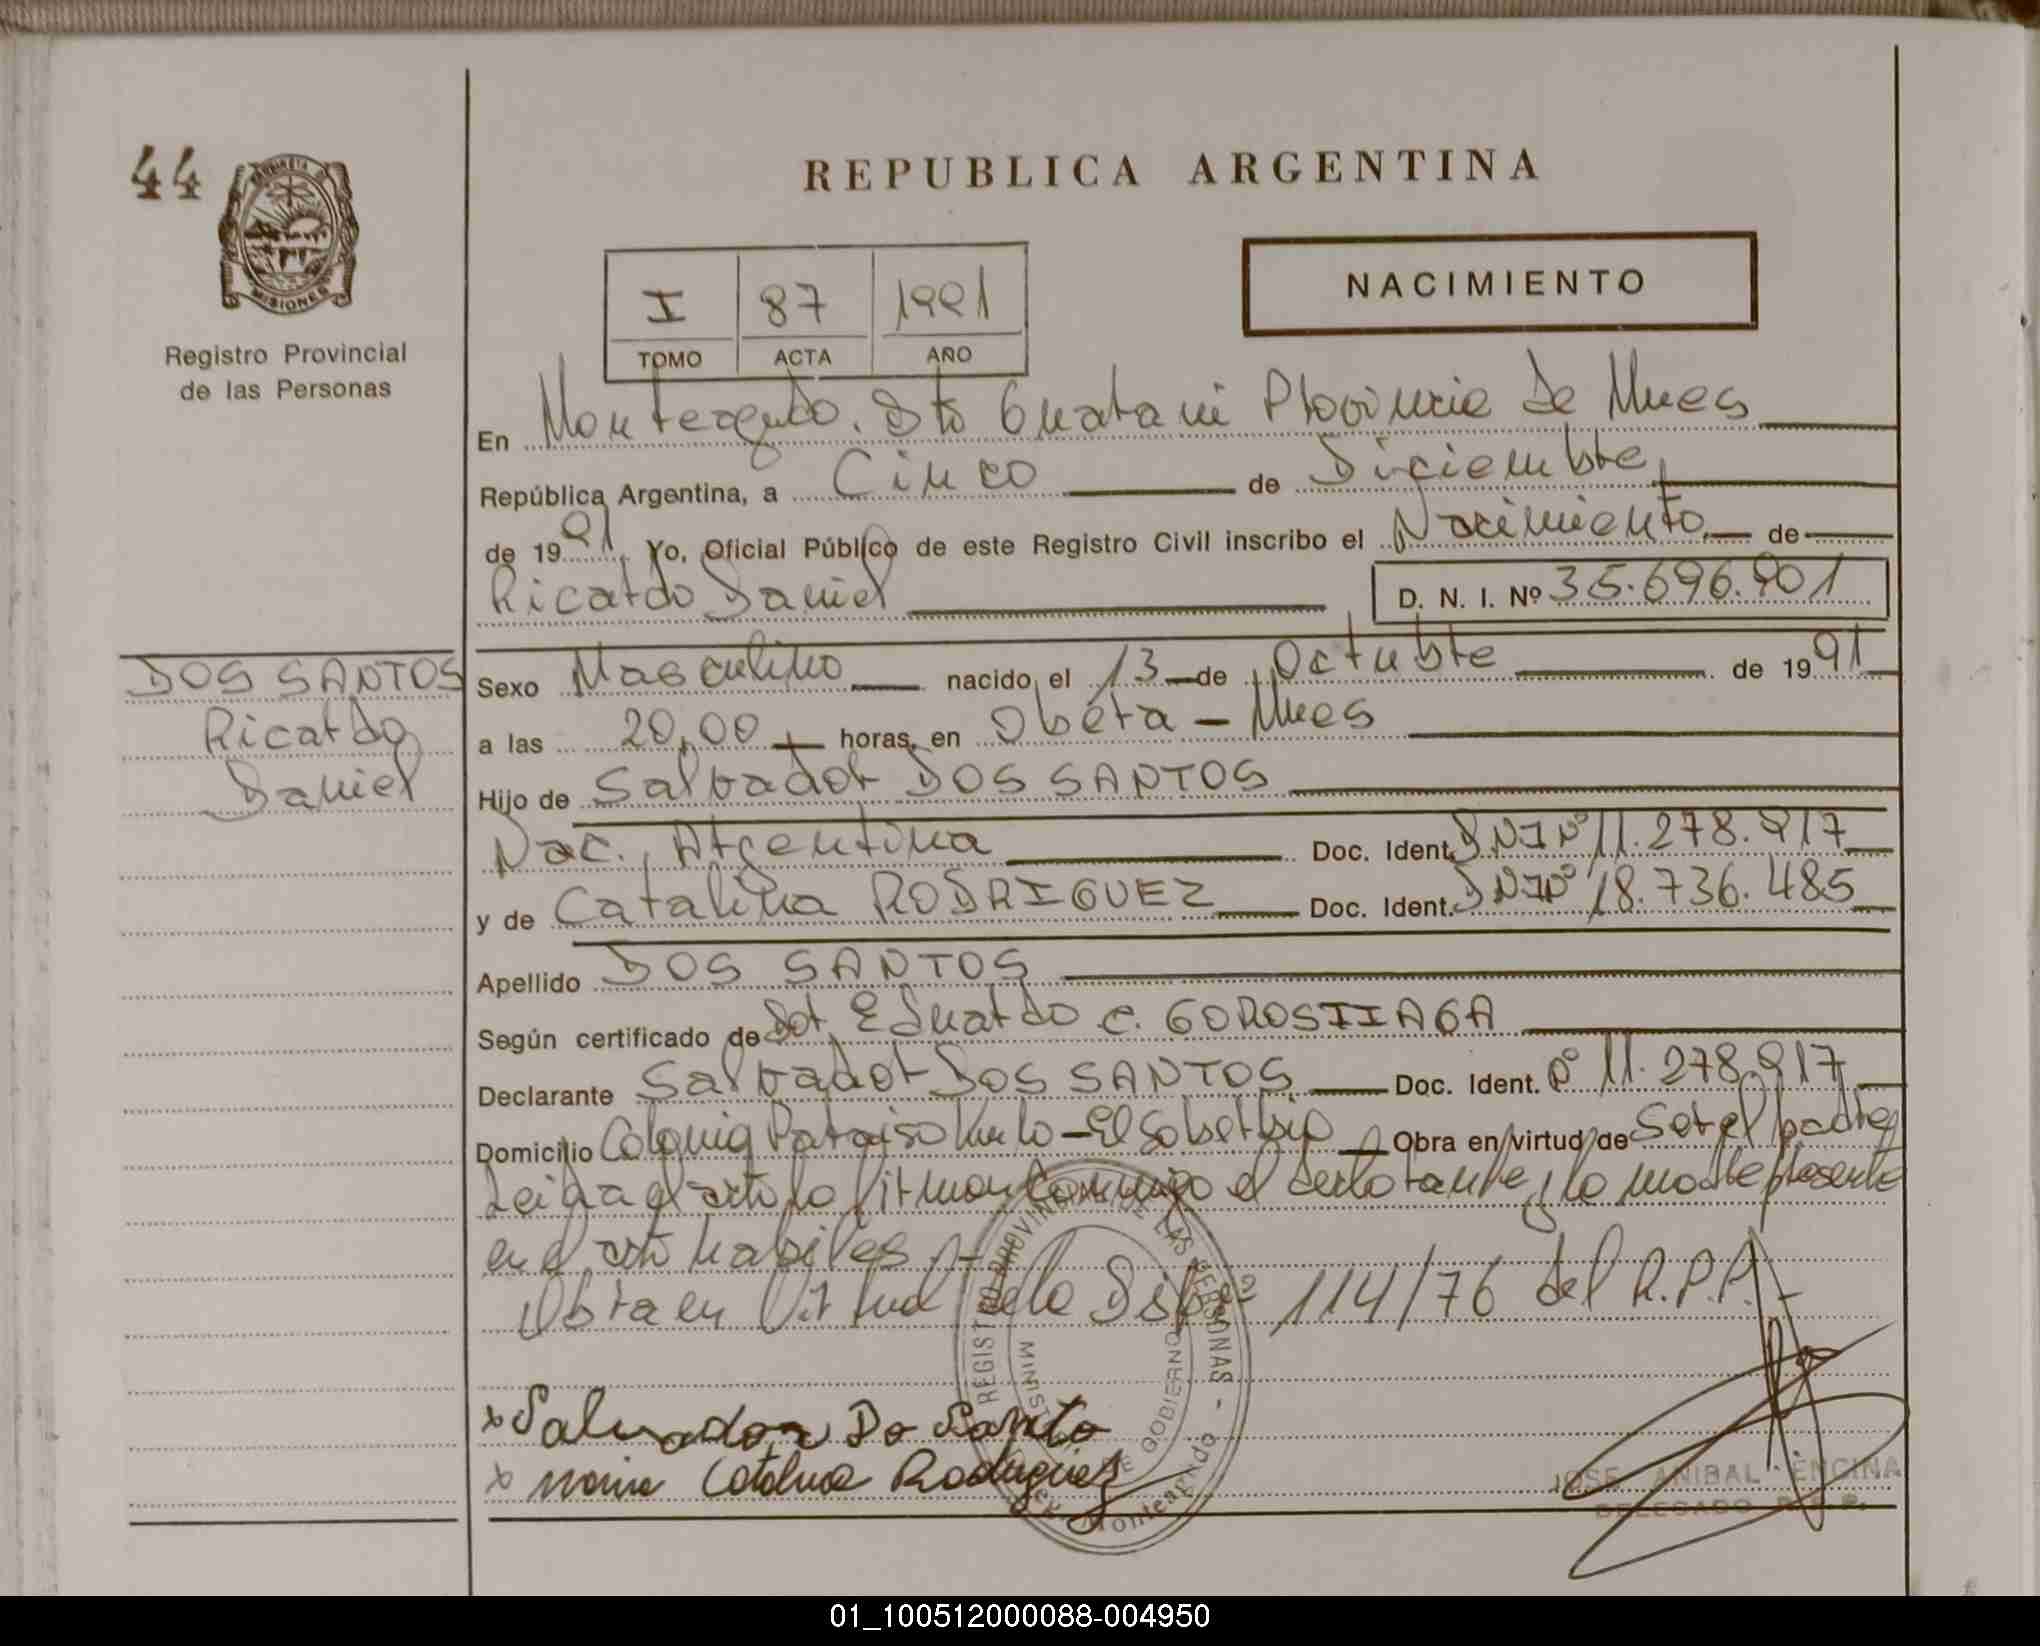 44
MISIONES
Registro Provincial
de las Personas
REPUBLICA ARGENTINA
I 87 1991
TOMO ACTA AÑO
NACIMIENTO
En Monteagudo. Dto Guarani Provincia de Mnes
República Argentina, a Cinco de Diciembre
de 1991. Yo, Oficial Público de este Registro Civil inscribo el Nacimiento de
Ricardo Daniel D. N. I. Nº 35.696.901
DOS SANTOS
Ricardo
Daniel
Sexo Masculino nacido el 13 de Octubre de 1991
a las 20,00 horas, en Oberá - Mnes
Hijo de Salvador DOS SANTOS
Nac. Argentina Doc. Ident. DNI Nº 11.278.917
y de Catalina RODRIGUEZ Doc. Ident. DNI Nº 18.736.485
Apellido DOS SANTOS
Según certificado de Dor. Eduardo C. GOROSTIAGA
Declarante Salvador DOS SANTOS Doc. Ident. Nº 11.278.917
Domicilio Colonia Paraiso Mnes - El Soberbio Obra en virtud de Ser el padre
Leida el acta la firman conmigo el declarante y la madre presente
en el acto habiles.-
Obra en Virtud de la Disp. nº 114/76 del R.P.P.-
x Salvador Do Santo
x Maria Catalina Rodriguez
REGISTRO PROVINCIAL DE LAS PERSONAS -
DE GOBIERNO
Monteagudo
JOSE ANIBAL ENCINA
DELEGADO R. P. P.
01_100512000088-004950